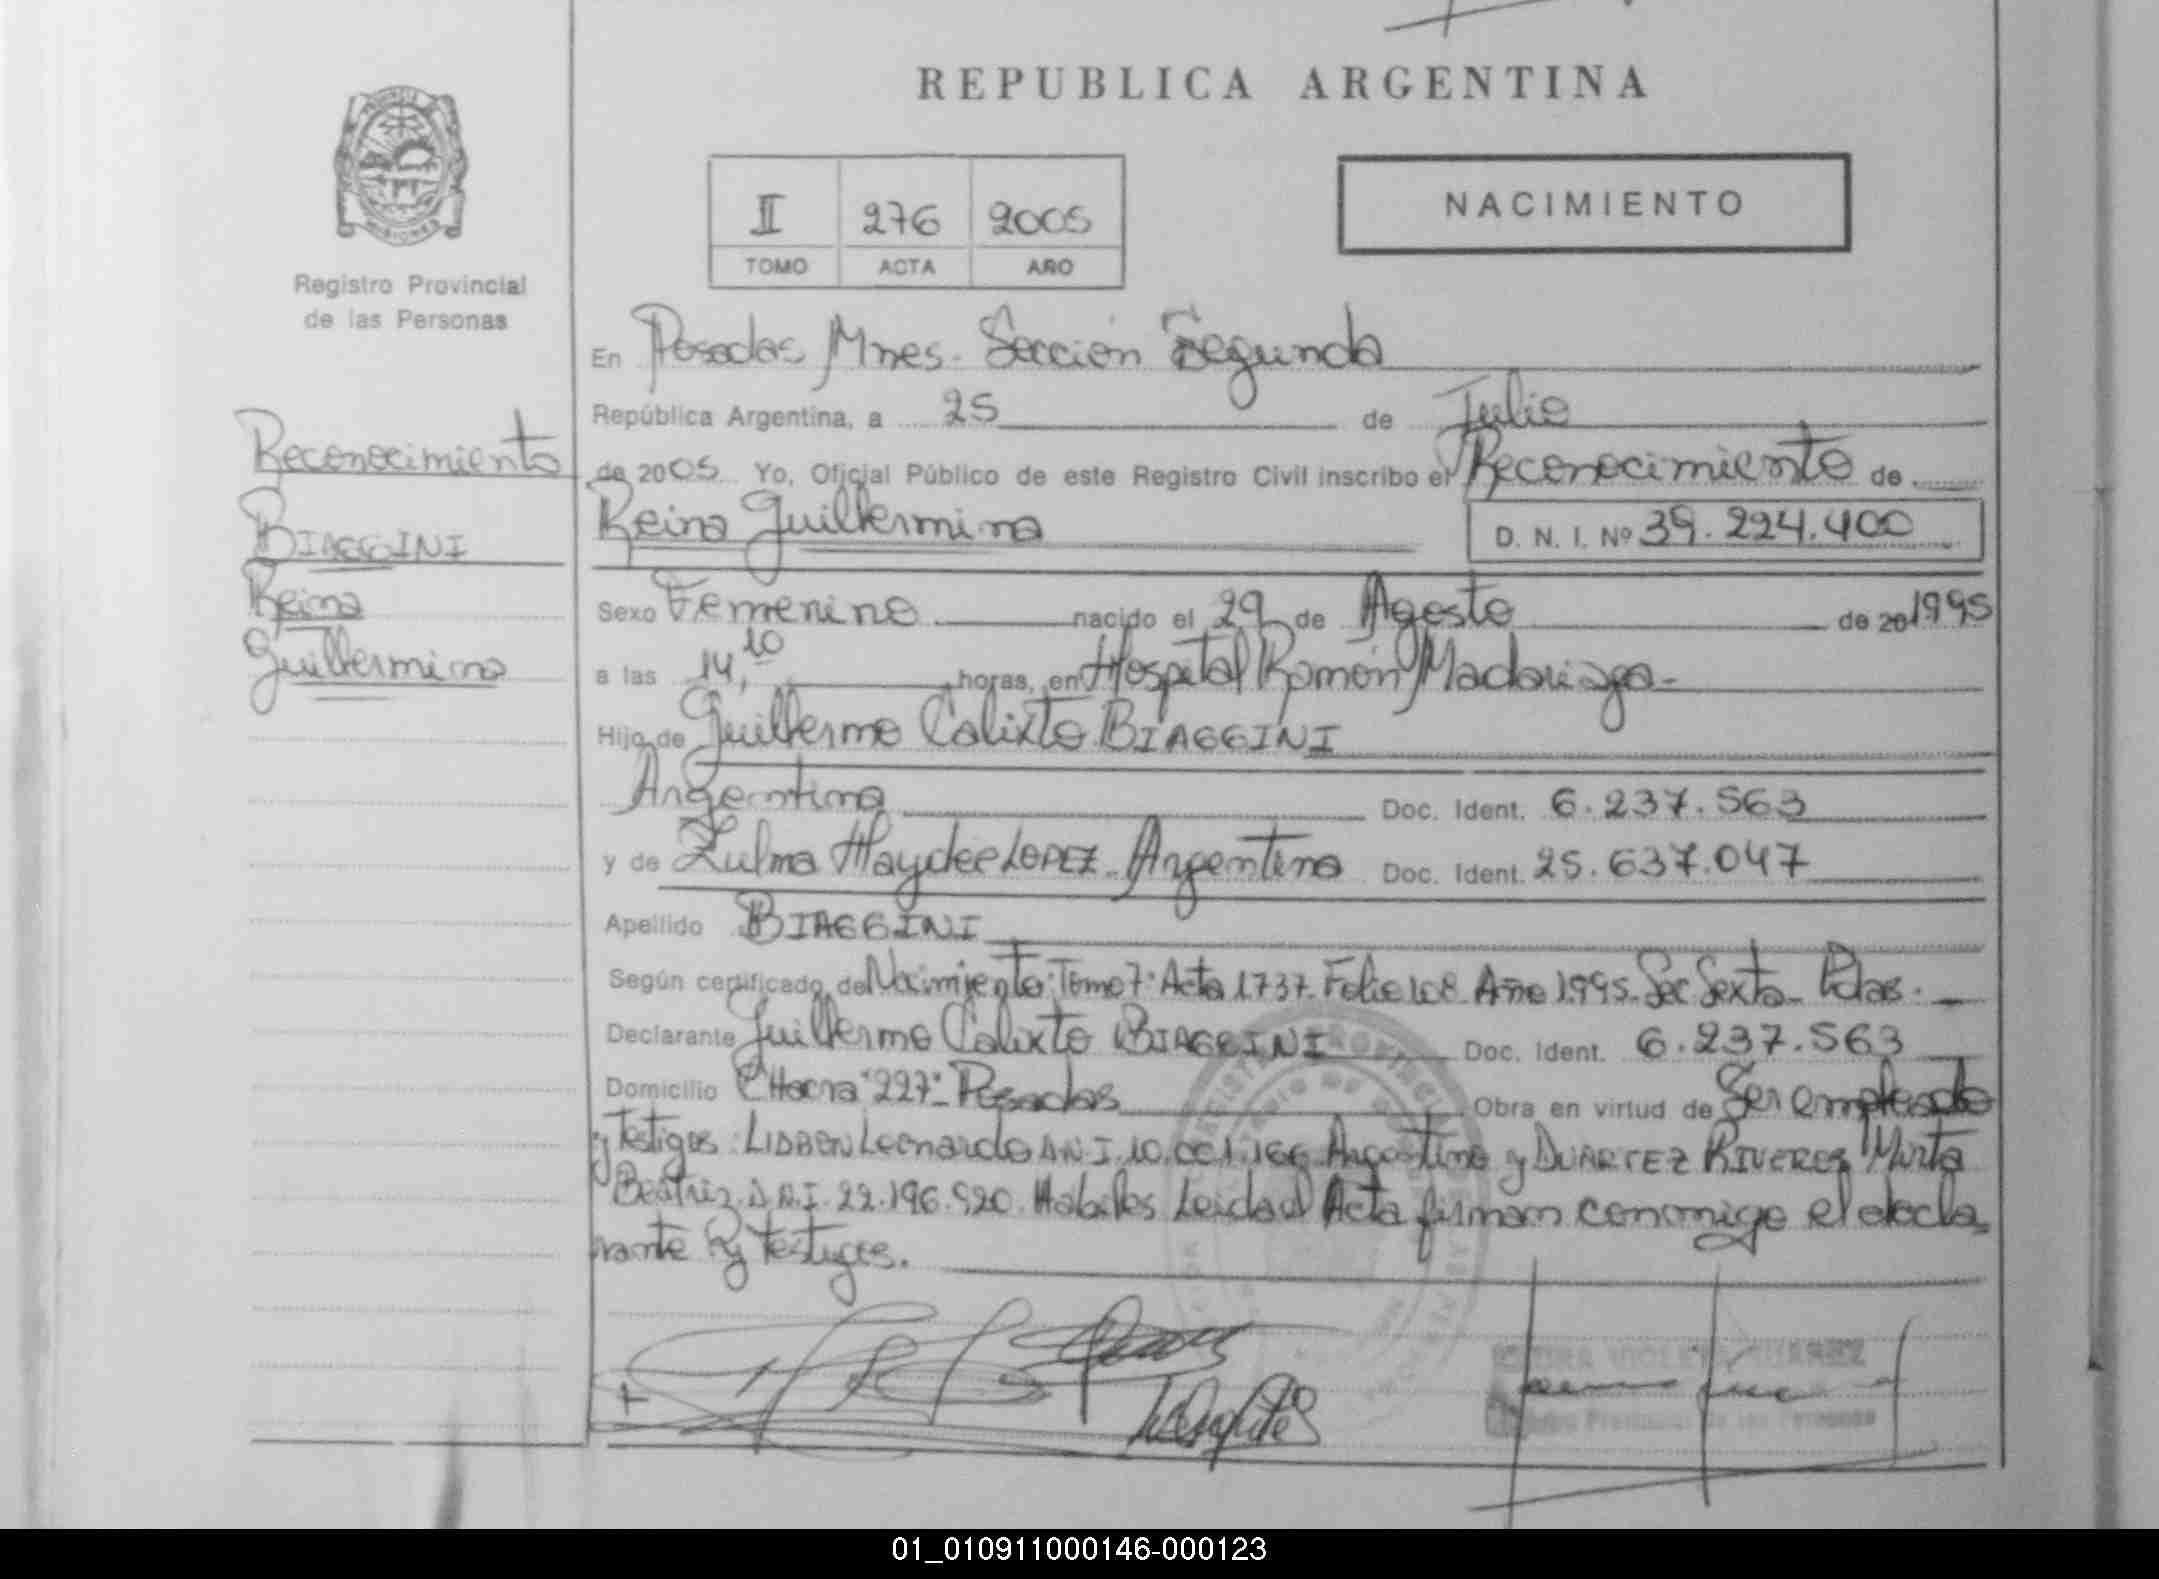 REPUBLICA ARGENTINA
PROVINCIA
MISIONES
Registro Provincial
de las Personas
II 276 2005
TOMO ACTA AÑO
NACIMIENTO
En Posadas Mnes. Sección Segunda
República Argentina, a 25 de Julio
de 2005 Yo, Oficial Público de este Registro Civil inscribo el Reconocimiento de
Reina Guillermina D. N. I. Nº 39.224.400
Reconocimiento
BIAGGINI
Reina
Guillermina
Sexo Femenino nacido el 29 de Agosto de 20 1995
a las 14,10 horas, en Hospital Ramón Madariaga-
Hijo de Guillermo Calixto BIAGGINI
Argentina Doc. Ident. 6.237.563
y de Zulma Haydee LOPEZ. Argentina Doc. Ident. 25.637.047
Apellido BIAGGINI
Según certificado de Nacimiento: Tomo 7: Acta 1737. Folio 108 Año 1995. Sec Sexta- Pdas.
Declarante Guillermo Calixto BIAGGINI Doc. Ident. 6.237.563
Domicilio CHacra "227"- Posadas Obra en virtud de Ser emplasado
y Testigos: Leonardo D.N.I. 10.001.166 Argentino y Mirta
Beatriz. D.N.I. 22.196.920. Habiles Leida el Acta firman conmigo el decla
rante y testigos.
VIOLETA SUAREZ
Provincial de las Personas
01_010911000146-000123